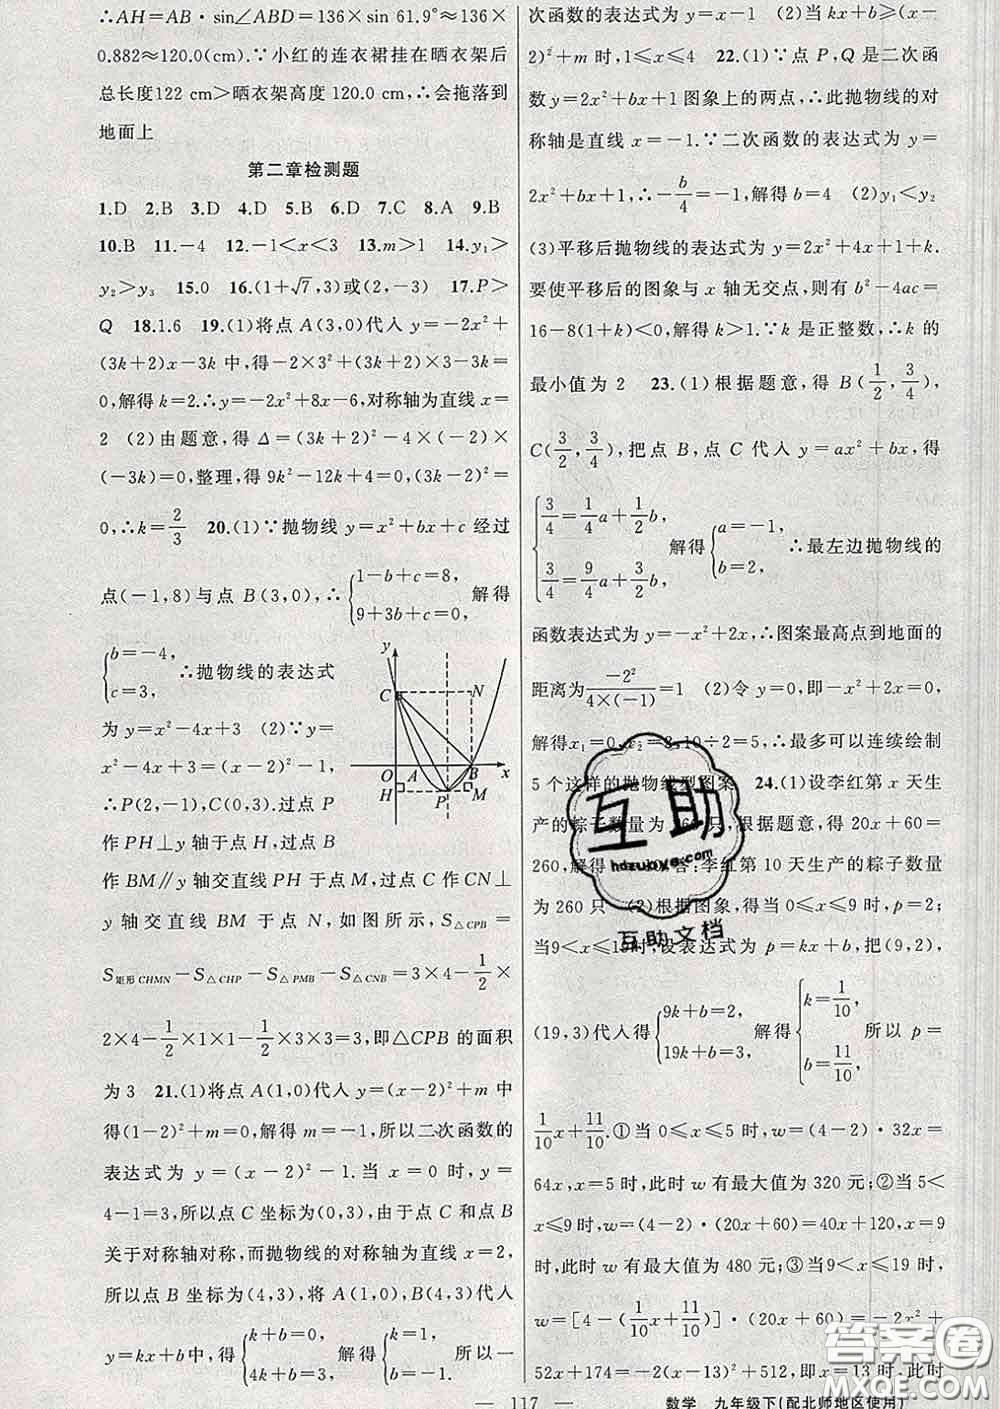 ∴AH=AB·sin∠ABD=136×sin 61.9°≈136×
0.882≈120.0(cm).∵小红的连衣裙挂在晒衣架后
总长度122 cm>晒衣架高度 120.0 cm,∴会拖落到
地面上
第二章检测题
1.D 2.B 3.D 4.D 5.B 6.D 7.C 8.A 9.B
10.B 11.-4 12.-1<x<3 13.m>1 14.y₁>
y₂>y₃ 15.0 16.(1+√7,3)或(2,-3) 17.P>
Q 18.1.6 19.(1)将点 A(3,0)代入 y=-2x²+
(3k+2)x-3k 中,得-2×3²+(3k+2)×3-3k=
0,解得 k=2.∴y=-2x²+8x-6,对称轴为直线 x=
2 (2)由题意,得 Δ=(3k+2)²-4×(-2)×
(-3k)=0,整理,得 9k²-12k+4=0,(3k-2)²=
0,∴k=2/3 20.(1)∵抛物线 y=x²+bx+c 经过
点(-1,8)与点 B(3,0),∴{1-b+c=8, 9+3b+c=0, 解得
{b=-4, c=3, ∴抛物线的表达式
为 y=x²-4x+3 (2)∵y=
x²-4x+3=(x-2)²-1,
∴P(2,-1),C(0,3).过点 P
作 PH⊥y 轴于点 H,过点 B
作 BM∥y 轴交直线 PH 于点 M,过点 C 作 CN⊥
y 轴交直线 BM 于点 N,如图所示,S△CPB=
S矩形CHMN-S△CHP-S△PMB-S△CNB=3×4-1/2×
2×4-1/2×1×1-1/2×3×3=3,即△CPB 的面积
为 3 21.(1)将点 A(1,0)代入 y=(x-2)²+m 中
得(1-2)²+m=0,解得 m=-1,所以二次函数的
表达式为 y=(x-2)²-1.当 x=0 时,y=
4-1=3,所以点 C 坐标为(0,3),由于点 C 和点 B
关于对称轴对称,而抛物线的对称轴为直线 x=2,
所以点 B 坐标为(4,3),将 A(1,0),B(4,3)代入
y=kx+b中,得{k+b=0, 4k+b=3, 解得{k=1, b=-1, 所以一
y
C
N
O
A
B
x
H
P
M
次函数的表达式为 y=x-1 (2)当 kx+b≥(x-
2)²+m 时,1≤x≤4 22.(1)∵点 P,Q 是二次函
数 y=2x²+bx+1 图象上的两点,∴此抛物线的对
称轴是直线 x=-1.∵二次函数的表达式为 y=
2x²+bx+1,∴-b/4=-1,解得 b=4 (2)y₁<y₂
(3)平移后抛物线的表达式为 y=2x²+4x+1+k.
要使平移后的图象与 x 轴无交点,则有 b²-4ac=
16-8(1+k)<0,解得 k>1.∵k 是正整数,∴k 的
最小值为 2 23.(1)根据题意,得 B(1/2,3/4),
C(3/2,3/4),把点 B,点 C 代入 y=ax²+bx,得
{3/4=1/4a+1/2b, 3/4=9/4a+3/2b, 解得{a=-1, b=2, ∴最左边抛物线的
函数表达式为 y=-x²+2x,∴图案最高点到地面的
距离为-2²/4×(-1)=1 (2)令 y=0,即-x²+2x=0,
解得x₁=0,x₂=2,10÷2=5,∴最多可以连续绘制
5 个这样的抛物线型图案 24.(1)设李红第 x 天生
产的粽子数量为 260 只,根据题意,得 20x+60=
260,解得 答:李红第 10 天生产的粽子数量
为 260 只 (2)根据图象,得当 0≤x≤9 时,p=2;
当9<x≤19时,设表达式为 p=kx+b,把(9,2),
(19,3)代入得{9k+b=2, 19k+b=3, 解得{k=1/10, b=11/10, 所以 p=
1/10x+11/10.①当 0≤x≤5 时,w=(4-2)·32x=
64x,x=5 时,此时 w 有最大值为 320 元;②当 5<
x≤9 时,w=(4-2)·(20x+60)=40x+120,x=9
时,此时 w 有最大值为 480 元;③当 9<x≤19 时,
w=[4-(1/10x+11/10)]·(20x+60)=-2x²+
52x+174=-2(x-13)²+512,即当x=13时,此时
互助
hdzuowen.com
互助文档
答案圈
— 117 — 数学 九年级下(配北师地区使用)